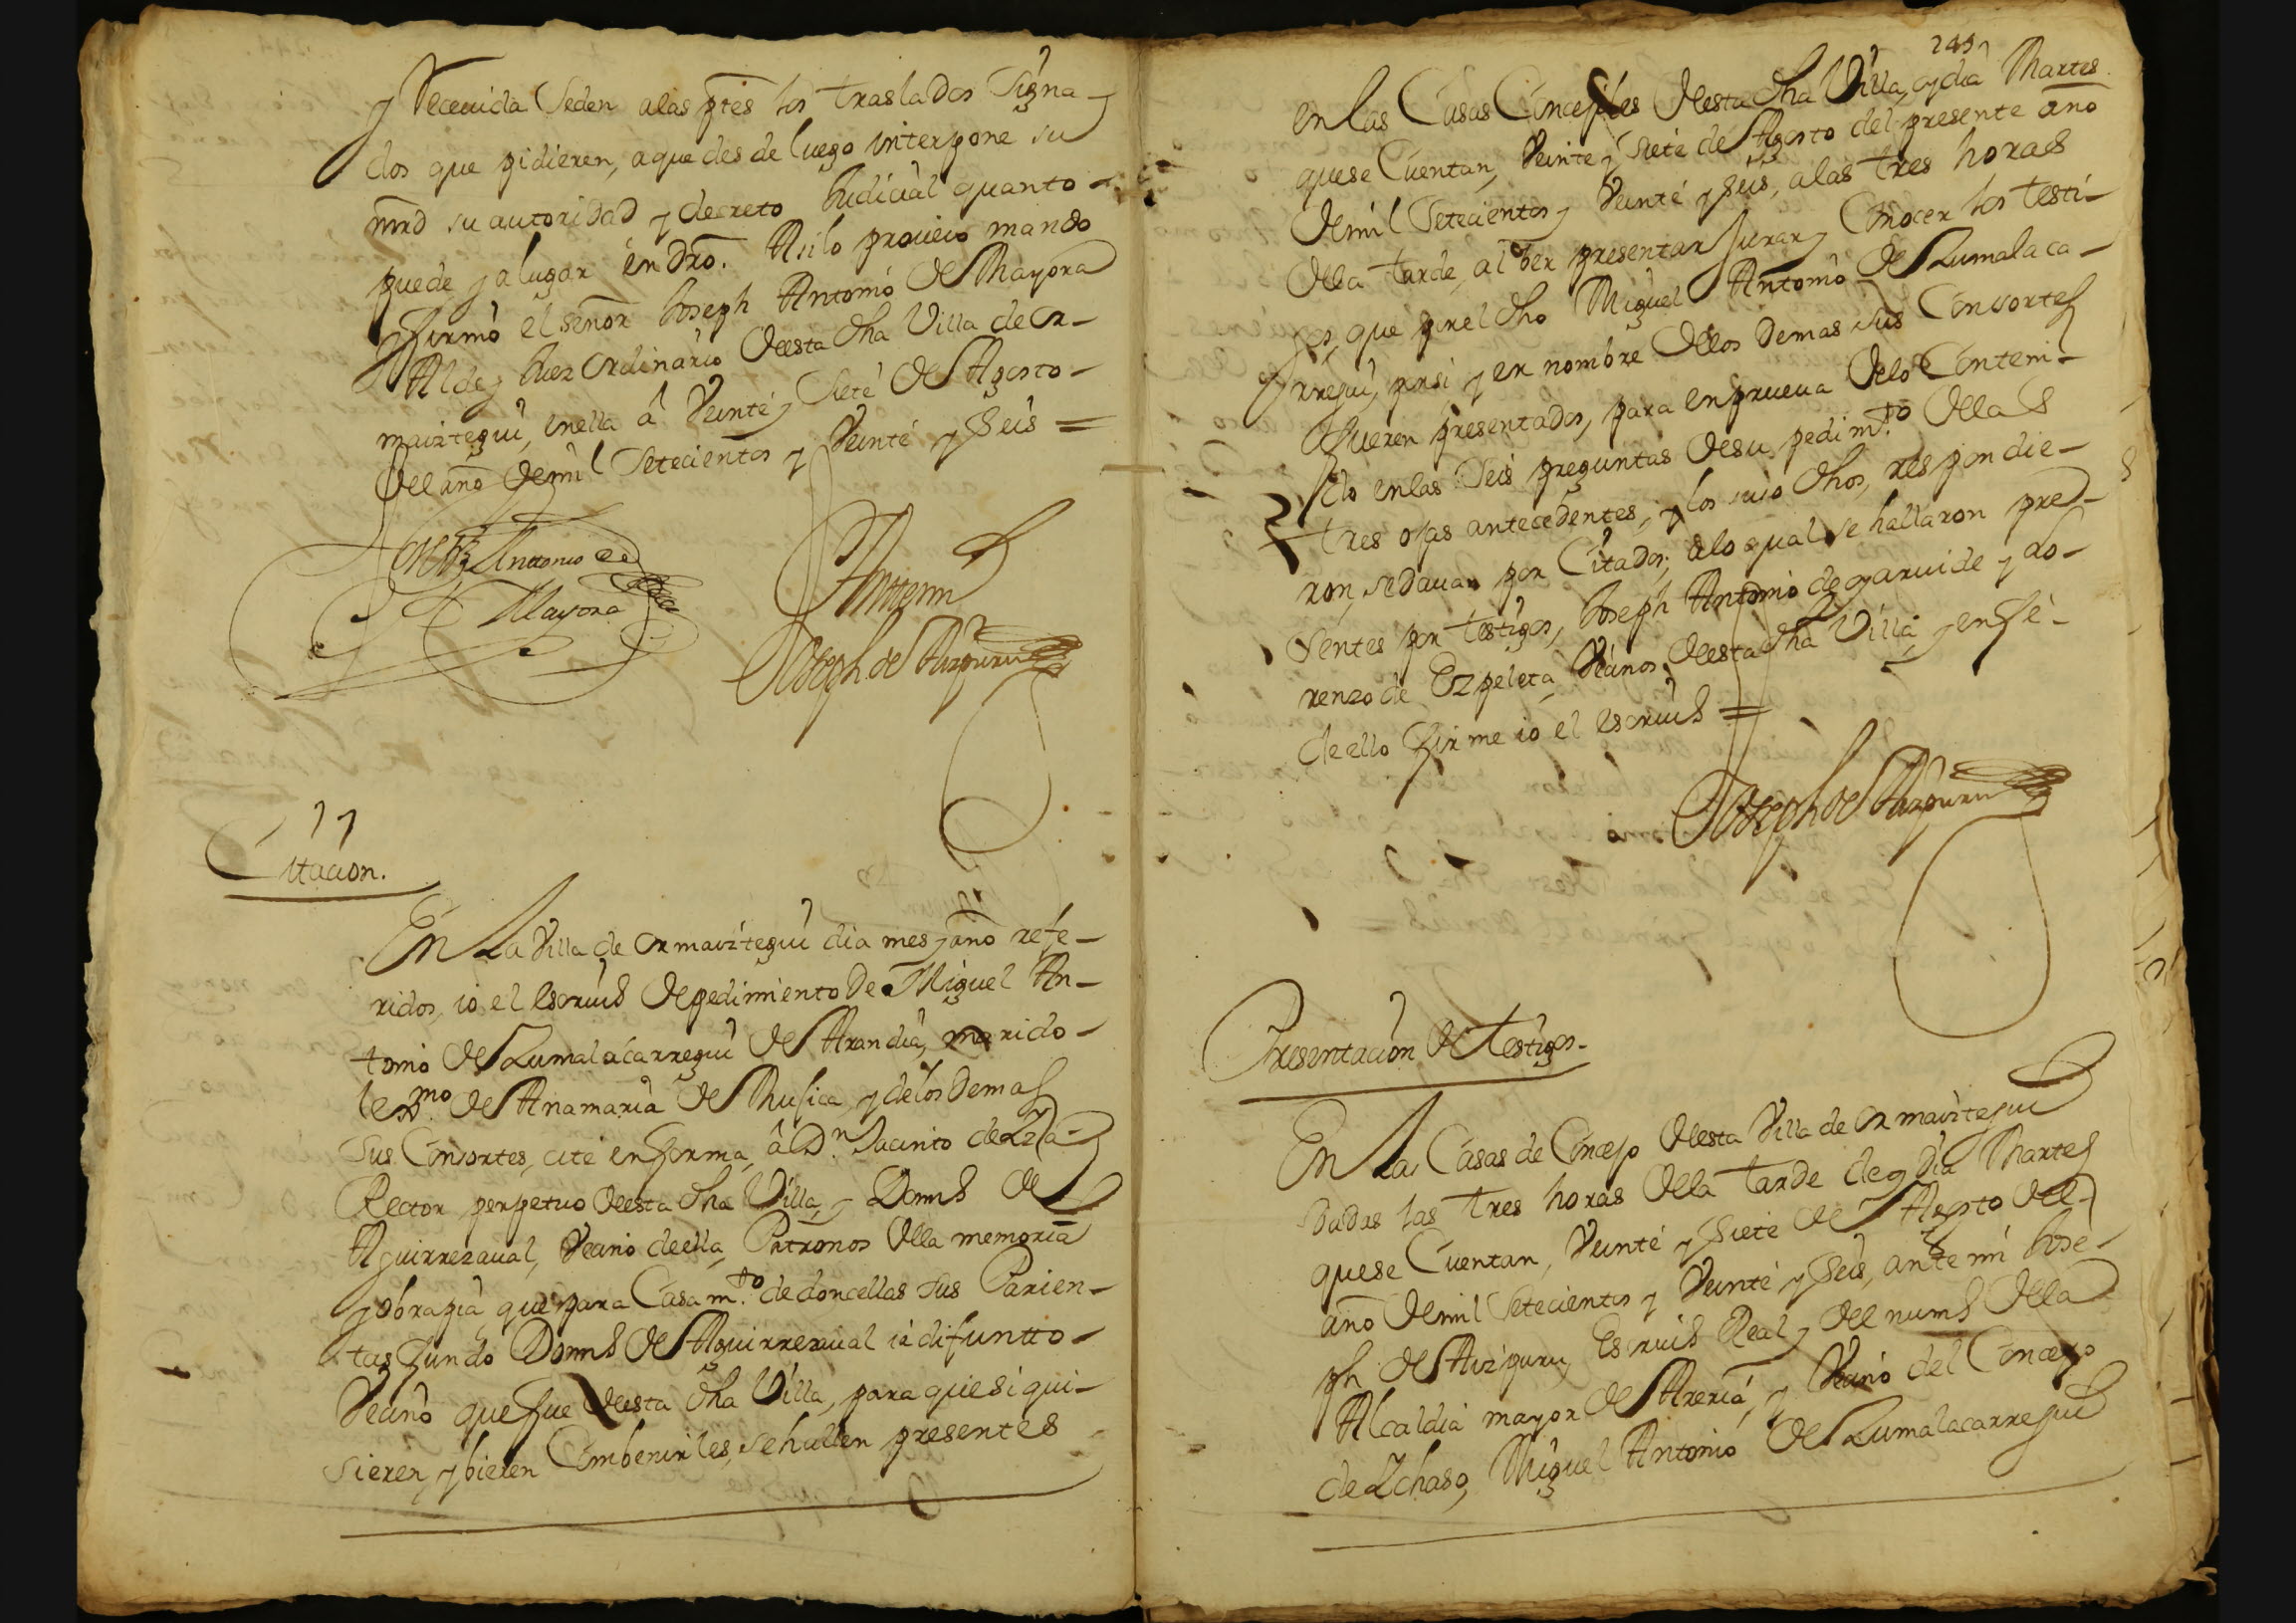 y Receuida Seden alas ptes los traslados Signa-
dos que pidieren, aque des de luego interpone su
mrd su autoridad y decreto Judiciàl quanto-
puede y a lugar en Dro. Asilo proueio mando
y firmò el señor Joseph Antonio de Mayora
Alde y Juez Ordinàrio desta dha Villa de Or-
maiztegui, enella â Veinte y Siete de Agosto-
del año de mil Setecientos y Veinte y Seis =
Joseph Anttonio de
Mayora
Antemi
Joseph de Aizpuru
Citàcion.
En La Villa de Ormaiztegui dia mes y año refe-
ridos, io el Escriuo de pedimiento De Miguel An-
tonio de Zumalacarregui de Arandia, marido-
lexmo de Anamaria de Musica, y delos Demas
Sus Consortes, cite en forma, â Dn Jacinto de
Rector perpetuo desta dha Villa, y Domo de
Aguirrezaual, Vecino deella, Patronos della memoria
y obrapia, que para Casamto de doncellas sus Parien-
tas fundò Domo de Aguirrezaual ià difuntto-
Vecino que fue desta dha Villa, para que si qui-
sieren, y bieren Combenirles, se hallen presentes
249
en las Casas Concejiles desta dha Villa, oy dia Martes
quese Cuentan, Veinte y Siete de Agosto del presente año
de mil Setecientos y Veinte y Seis, alas tres horas
della tarde, al ber presentar Jurar y Conocer los testi-
gos, que por el dho Miguel Antonio de Zumalaca-
rregui, por si, y en nombre dellos Demas sus Consortes
fueren presentados, para en prueua delo Conteni-
do enlas Seis preguntas desu pedimto dellas
tres ojas antecedentes, y los suso dhos, respondie-
ron, sedauan por Citados; alo qual se hallaron pre-
sentes por testigos, Joseph Antonio de Garuide y Lo-
renzo de Ezpeleta, Vecinos desta dha Villa, y en fè-
de ello firme io el escriuo =
Joseph de Aizpuru
Presentaciòn de Testigos-
En Las Casas de Concejo desta Villa de Ormaiztegui
dadas las tres horas della tarde de oy dia Martes
quese Cuentan, Veinte y Siete de Agosto del
año de mil Setecientos y Veinte y Seis, ante mi Jose-
ph de Aizpuru, Escriuo Real y del numo della
Alcaldia mayor de Areria, y Vecino del Concejo
de Ychaso, Miguel Antonio de Zumalacarregui